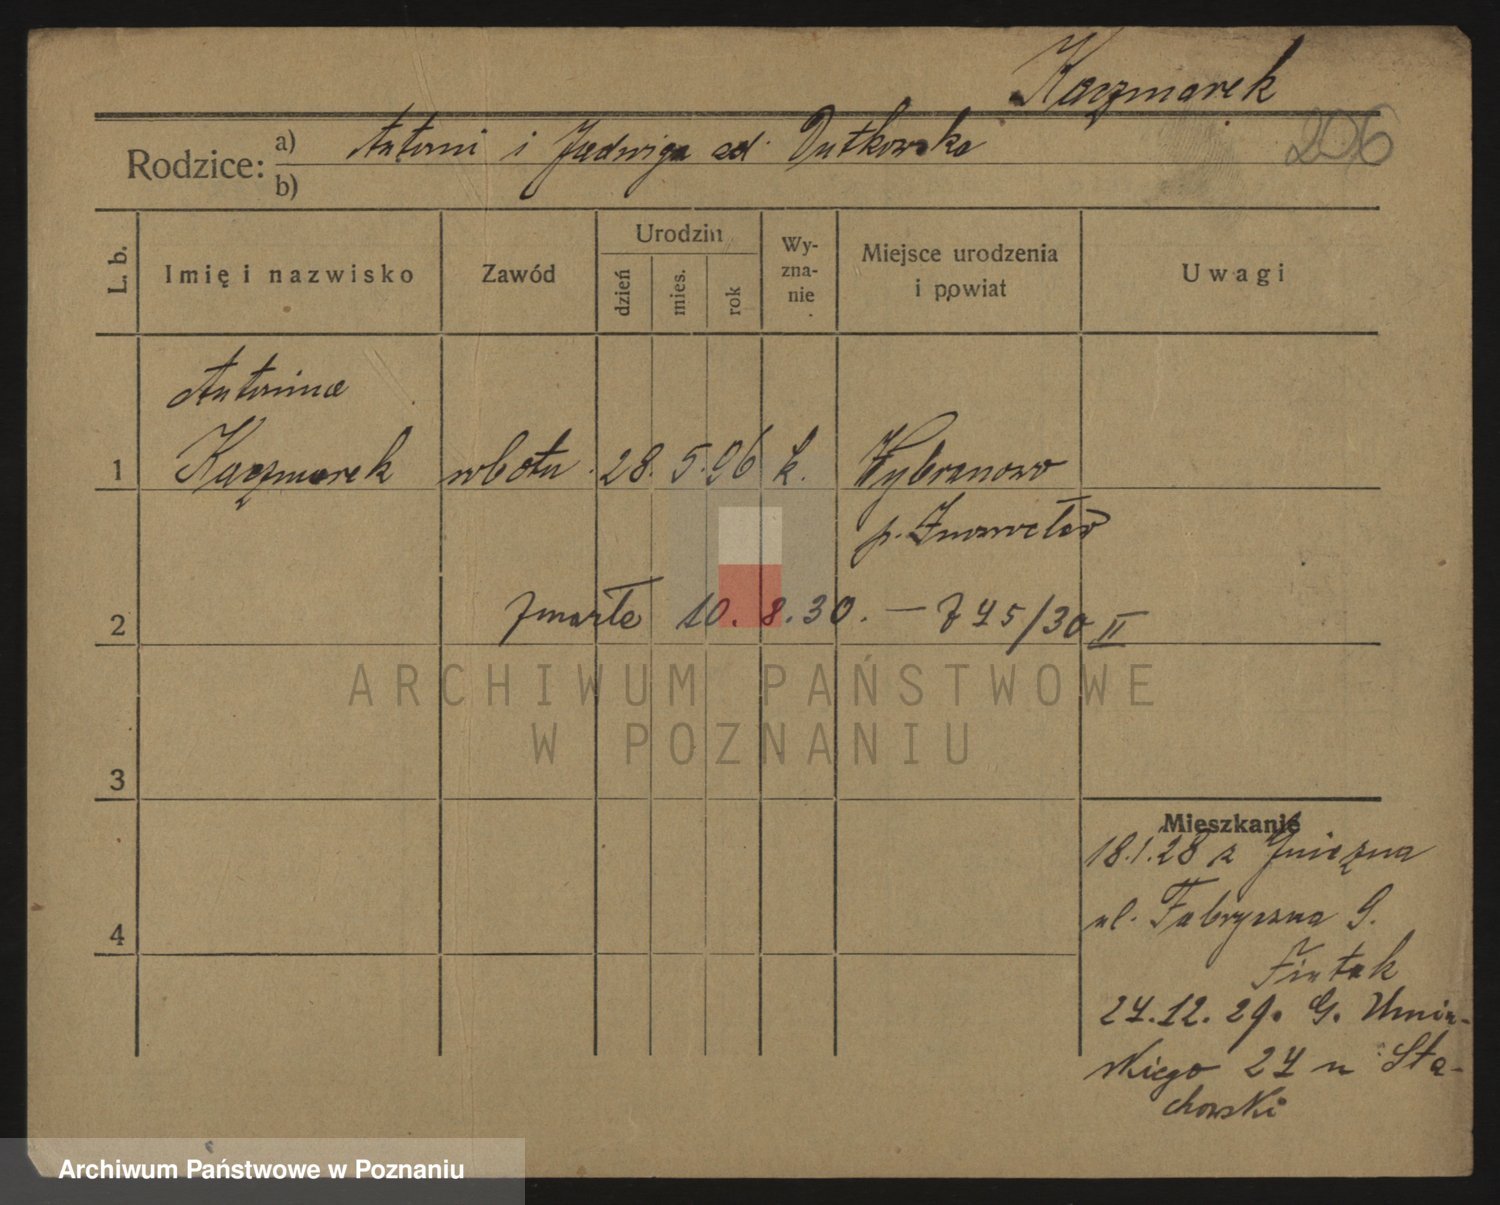 Kaczmarek
206
Rodzice: a) Antoni i Jadwiga Dutkowska
b)
L. b. Imię i nazwisko Zawód Urodzin dzień mies. rok Wyznanie Miejsce urodzenia i powiat Uwagi
Antonina
1 Kaczmarek robotn. 28. 5. 96 k. Wybranowo
p. Inowrocław
2 zmarła 10. 8. 30. — 745/30 II
ARCHIWUM PAŃSTWOWE
W POZNANIU
3
Mieszkanie
18.1.28 z Gniezna
4 ul. Fabryczna 9.
27.12.29. G. Umiń-
skiego 27 u Sta-
chowski
Archiwum Państwowe w Poznaniu